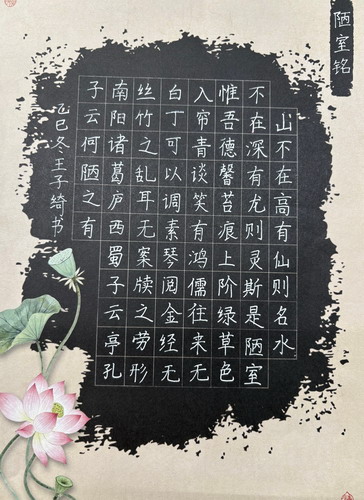 陋室铭
山不在高有仙则名水
不在深有龙则灵斯是陋室
惟吾德馨苔痕上阶绿草色
入帘青谈笑有鸿儒往来无
白丁可以调素琴阅金经无
丝竹之乱耳无案牍之劳形
南阳诸葛庐西蜀子云亭孔
子云何陋之有
乙巳冬王子绮书